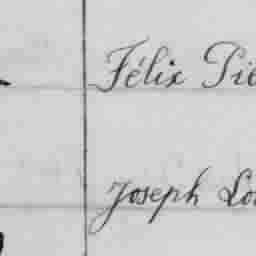 Félix Pie
Joseph Lou